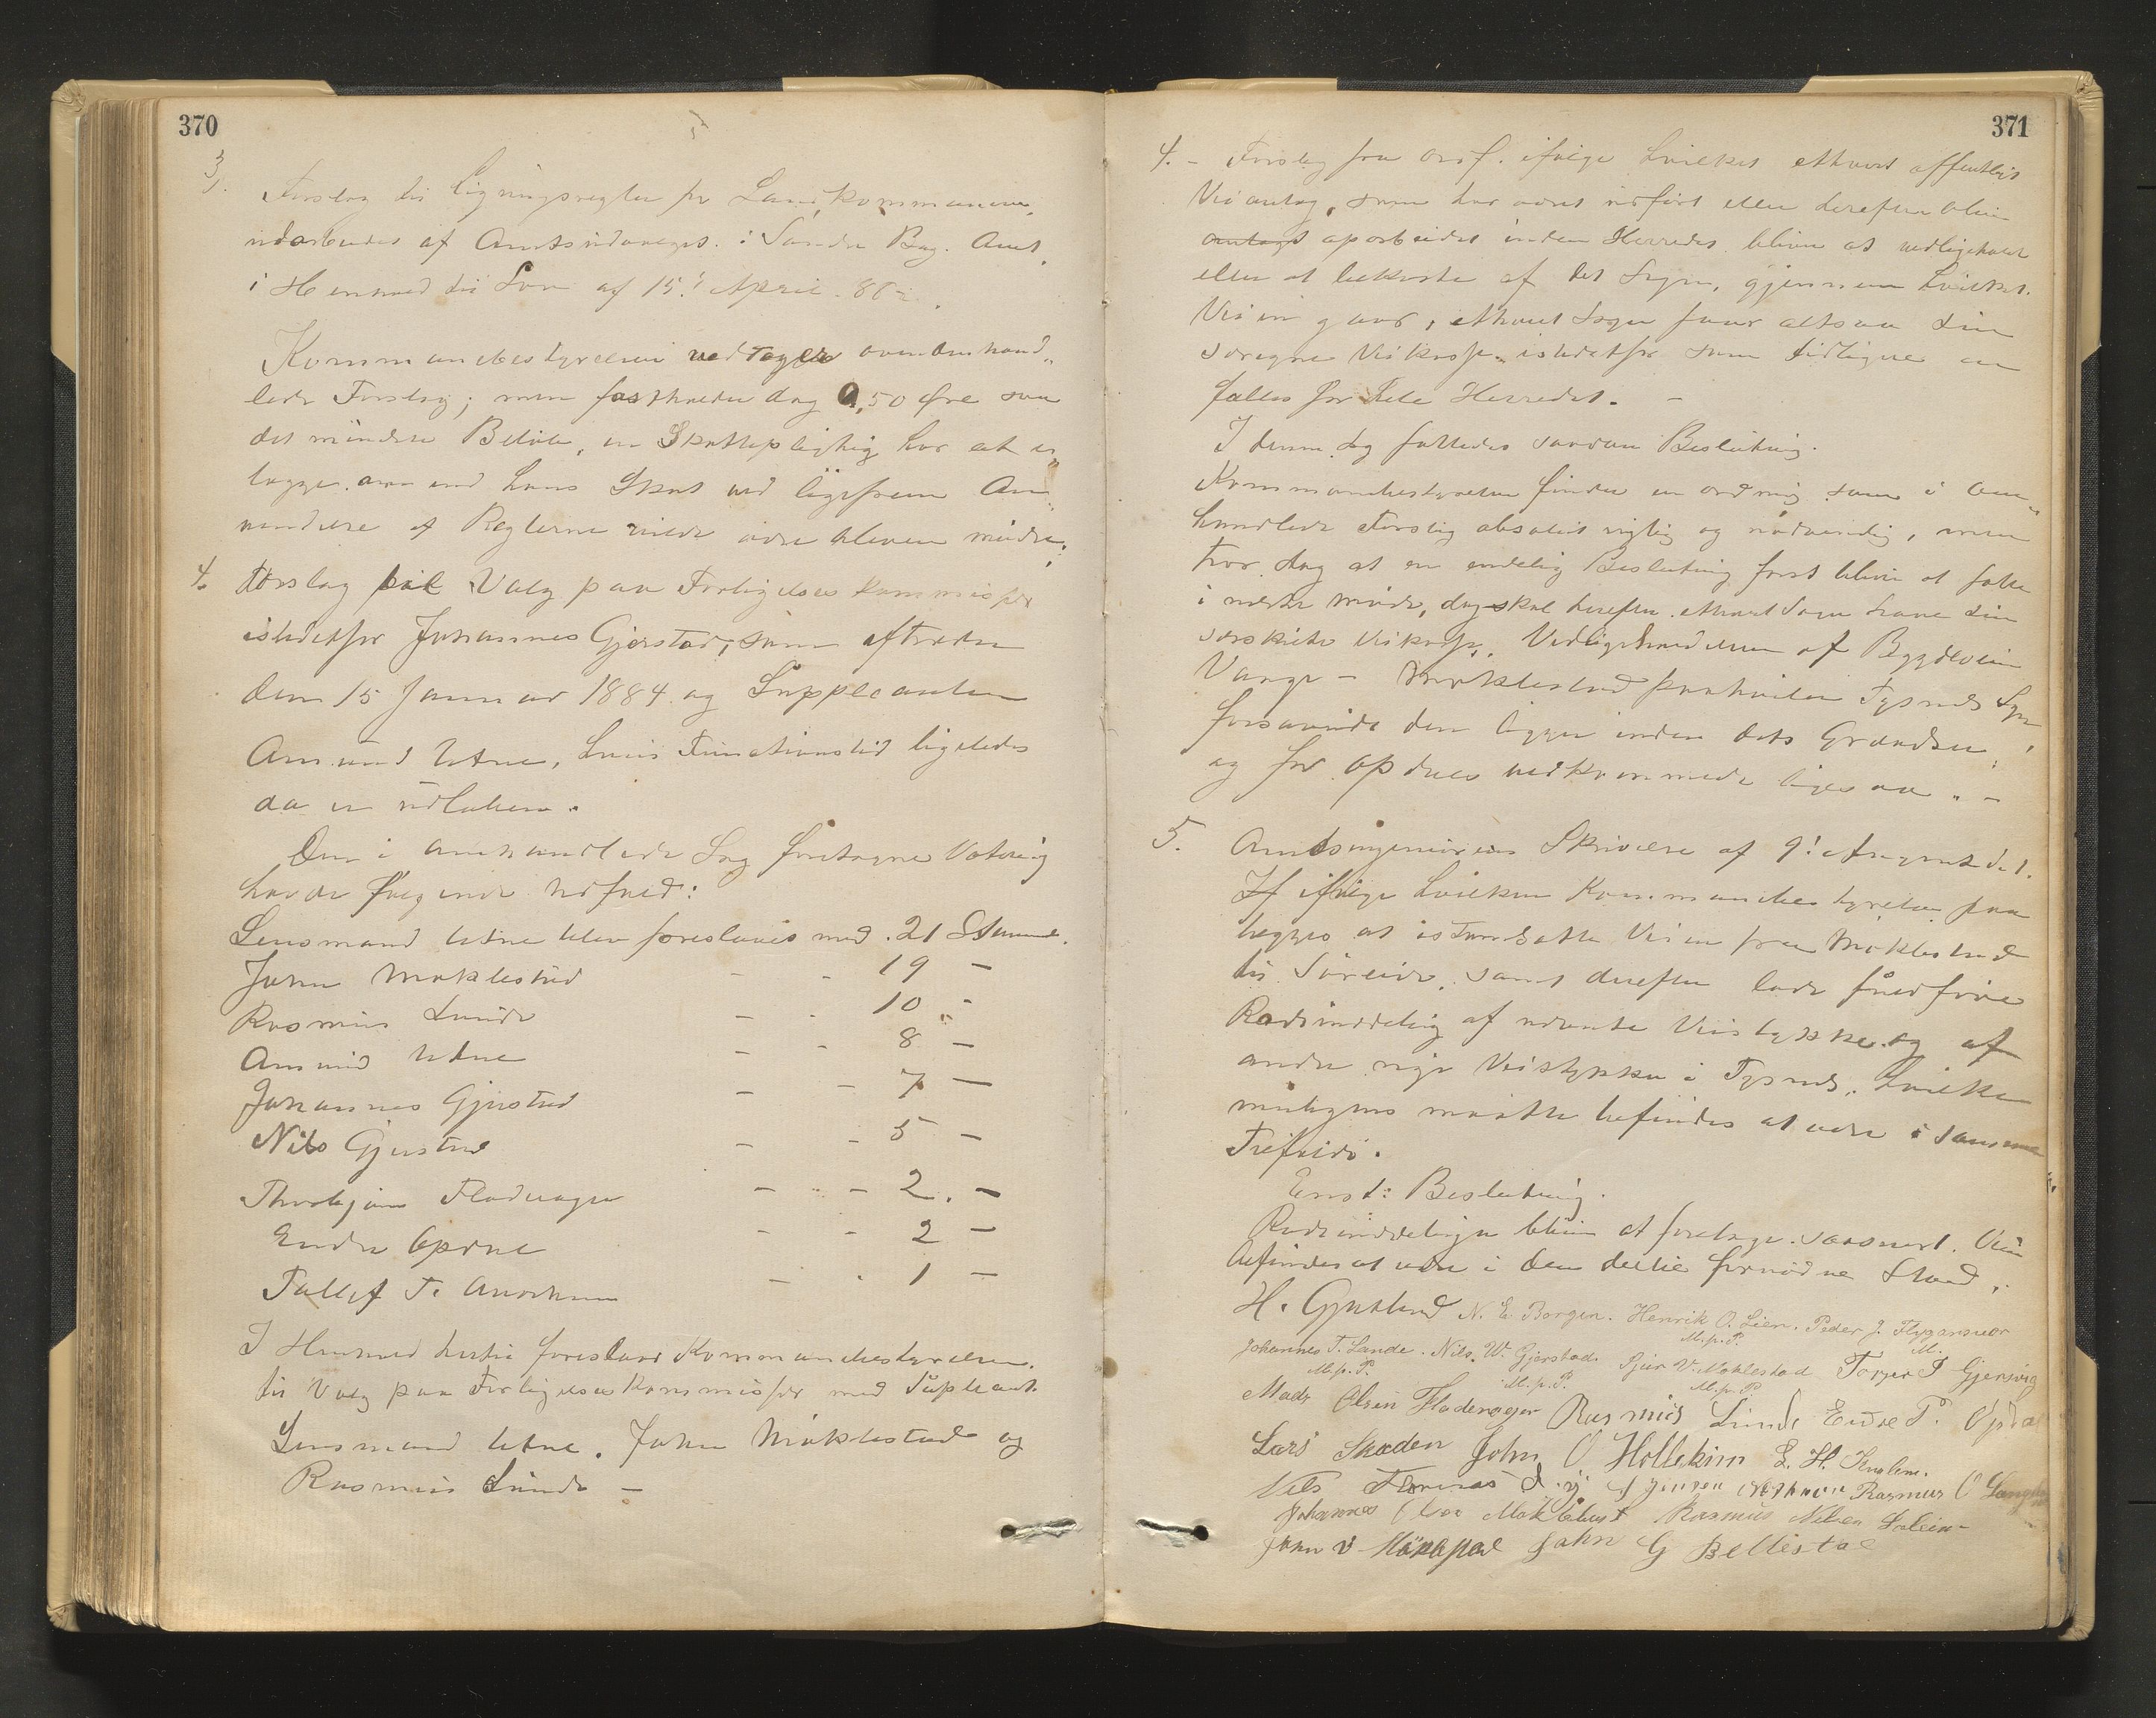 370
3.
Forslag til Ligningsregler for Landkommunerne,
udarbeidet af Amtsudvalget i Søndre Berg. Amt,
i Henhold til Lov af 15de April 82.
Kommunebestyrelsen vedtager ovenomhand„
lede Forslag; men fastsætter dog 0,50 Øre som
det mindste Beløb, en Skattepligtig har at er„
lægge, om end hans Skat ved ligefrem An„
vendelse af Reglerne vilde være bleven mindre.
4. Forslag til Valg paa Forligelseskommissær
istedetfor Johannes Gjerstad, som aftræder
den 15 Januar 1884 og Suppleanten
Amund Utne, hvis Functionstid ligeledes
da er udløben.
Den i omhandlede Sag foretagne Votering
havde følgende Udfald:
Lensmand Utne blev foreslaaet med 21 Stemmer.
John Møklestad - - 19 -
Rasmus Lunde - - 10 -
Amund Utne - - 8 -
Johannes Gjerstad - - 7 -
Nils Gjerstad - - 5 -
Thorbjørn Fladerager - - 2 -
Endre Opdal - - 2 -
Tollef T. - - 1 -
I Henhold hertil foreslaar Kommunebestyrelsen
til Valg paa Forligelseskommissær med Supleant
Lensmand Utne, John Møklestad og
Rasmus Lunde -
371
4. - Forslag fra Ordf. ifølge hvilket ethvert offentligt
Veianlæg, som har været udført eller herefter bliver
anlagt oparbeidet inden Herredet bliver at vedligeholde
eller at bekoste af det Sogn, gjennem hvilket
Veien gaar, ethvert Sogn faar altsaa sin
særegne Veikasse istedetfor som tidligere en
fælles for hele Herredet. -
I denne Sag fattedes saadan Beslutning.
Kommunebestyrelsen finder en ordning som i om„
handlede Forslag absolut rigtig og nødvendig, men
tror dog at en endelig Beslutning først bliver at fatte
i næste Møde, dog skal herefter ethvert Sogn have sin
særskilte Veikasse. Vedligeholdelsen af Bygdeveien
Vaage - Møklestad paahviler Tysnes Sogn
forsaavidt den ligger inden dets Grændser,
og for Opdals vedkommende ligesaa. -
5. Amtsingeniørens Skrivelse af 9de August d. A.
Hf ifølge hvilken Kommunebestyrelsen paa
lægges at istandsætte Veien fra Møklestad
til Søreide, samt derefter lade fuldføre
Rodeinddeling af nævnte Veistykke og af
andre nye Veistykker i Tysnes, hvilke
muligens maatte befindes at være i samme
Tilfælde.
Enst: Beslutning.
Rodeinddelingen bliver at foretage saasnart Veien
befindes at være i den dertil fornødne Stand.
H. Gjerstad N. E. Borgen. Henrik O. Lien. Peder J. Flygansvær
M.p.P. M.
Johannes T. Lande. Nils W. Gjerstad. Peer V. Møklestad Torger I Gjersvig
M.p.P. M.p.P. M.p.P.
Mads Olsen Fladerager Rasmus Lunde Endre P. Opdal
Lars Skaaden John O Hollekim E. H. Kualem.
Nils Rasmus O
Johannes Møklebust Rasmus Nilsen
John G Bellestad